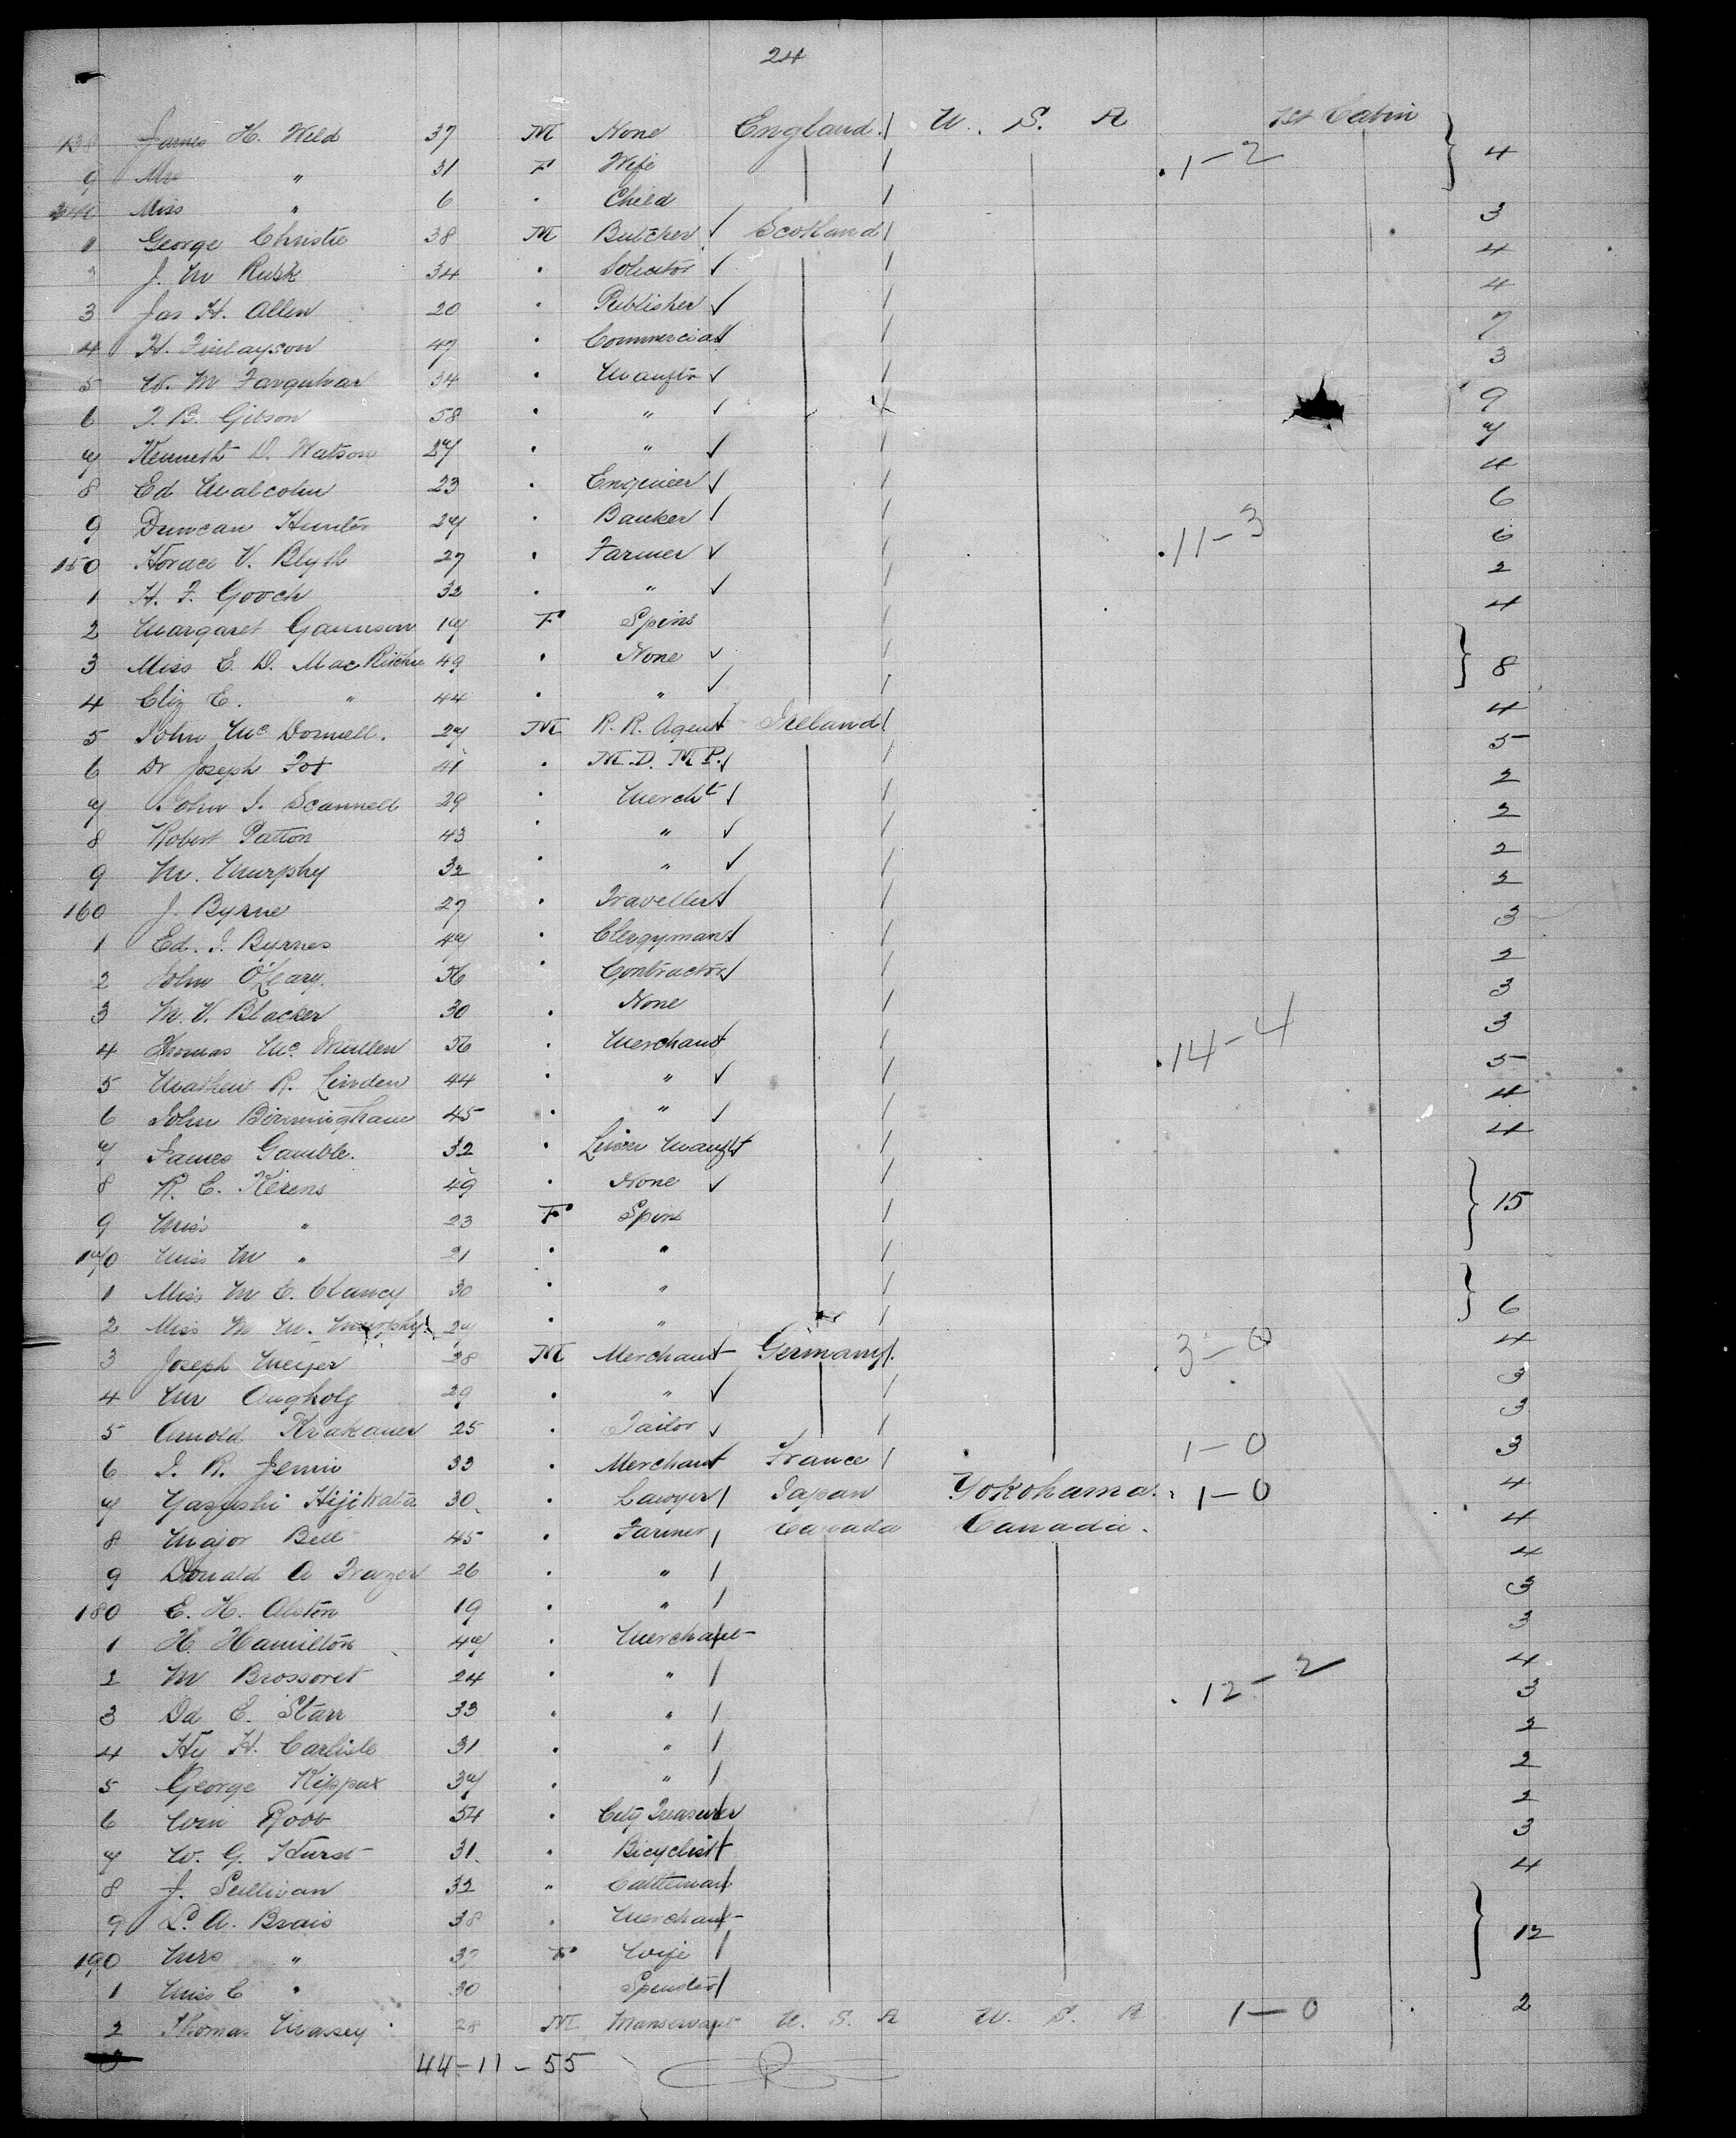 24
138 James H. Weld 37 M None England U. S. A 1st Cabin
9 Mrs " 31 F Wife 1-2 4
Miss " 6 Child
1 George Christie 38 M Butcher Scotland 3
2 J. M Rusk 34 Solicitor 4
3 Jas H. Allen 20 Publisher 4
4 H. Finlayson 47 Commercial 7
5 W. M Farquhar 34 Manftr 3
6 J. B. Gibson 58 " 9
7 Kenneth D. Watson 27 " 7
8 Ed Malcolm 23 Engineer 4
9 Duncan Hunter 27 Banker 6
150 Horace V. Blyth 27 Farmer 11-3 6
1 H. F. Gooch 32 " 2
2 Margaret Gannson 17 F Spins 4
3 Miss E. D. MacRitchie 49 None 8
4 Eliz E. " 44 "
5 John McDonnell. 27 M R. R. Agent Ireland 4
6 Dr Joseph Fox 41 M.D. M.P. 5
7 John J. Scannell 29 Mercht 2
8 Robert Patton 43 " 2
9 M. Murphy 32 " 2
160 J. Byrne 27 Traveller 2
1 Ed. J. Byrnes 47 Clergyman 3
2 John O'Leary. 56 Contractor 2
3 M. V. Blacker 30 None 3
4 Thomas McMullen 56 Merchant 14-4 3
5 Mathew R. Linden 44 " 5
6 John Birmingham 45 " 4
7 James Gamble. 32 Linen Manuft 4
8 R. C. Kerens 49 None 15
9 Miss " 23 F Spins
170 Miss M " 21 "
1 Miss M E. Clancy 30 " 6
2 Miss M M. Murphy 27 "
3 Joseph Meyer 28 M Merchant Germany 3-0 4
4 Mr 29 " 3
5 Arnold Krakauer 25 Tailor 3
6 J. R. 33 Merchant France 1-0 3
7 Yasushi Hijikata 30 Lawyer Japan Yokohama. 1-0 4
8 Major Bell 45 Farmer Canada Canada. 4
9 Donald A Frazer 26 " 4
180 E. H. Alston 19 " 3
1 H. Hamilton 47 Merchant 3
2 M Brossoret 24 " 12-2 4
3 Dd E. Starr 33 " 3
4 Hy H. Carlisle 31 " 2
5 George Kippax 37 " 2
6 Wm Robb 54 City Treasurer 2
7 W. G. Hurst 31 Bicyclist 3
8 J. Sullivan 32 " Cattleman 4
9 L. A. Brais 38 Merchant 12
190 Mrs " 37 F Wife
1 Miss C " 30 Spinster
2 Thomas Massey 28 M Manservant U. S. A U. S. A 1-0 2
44-11-55